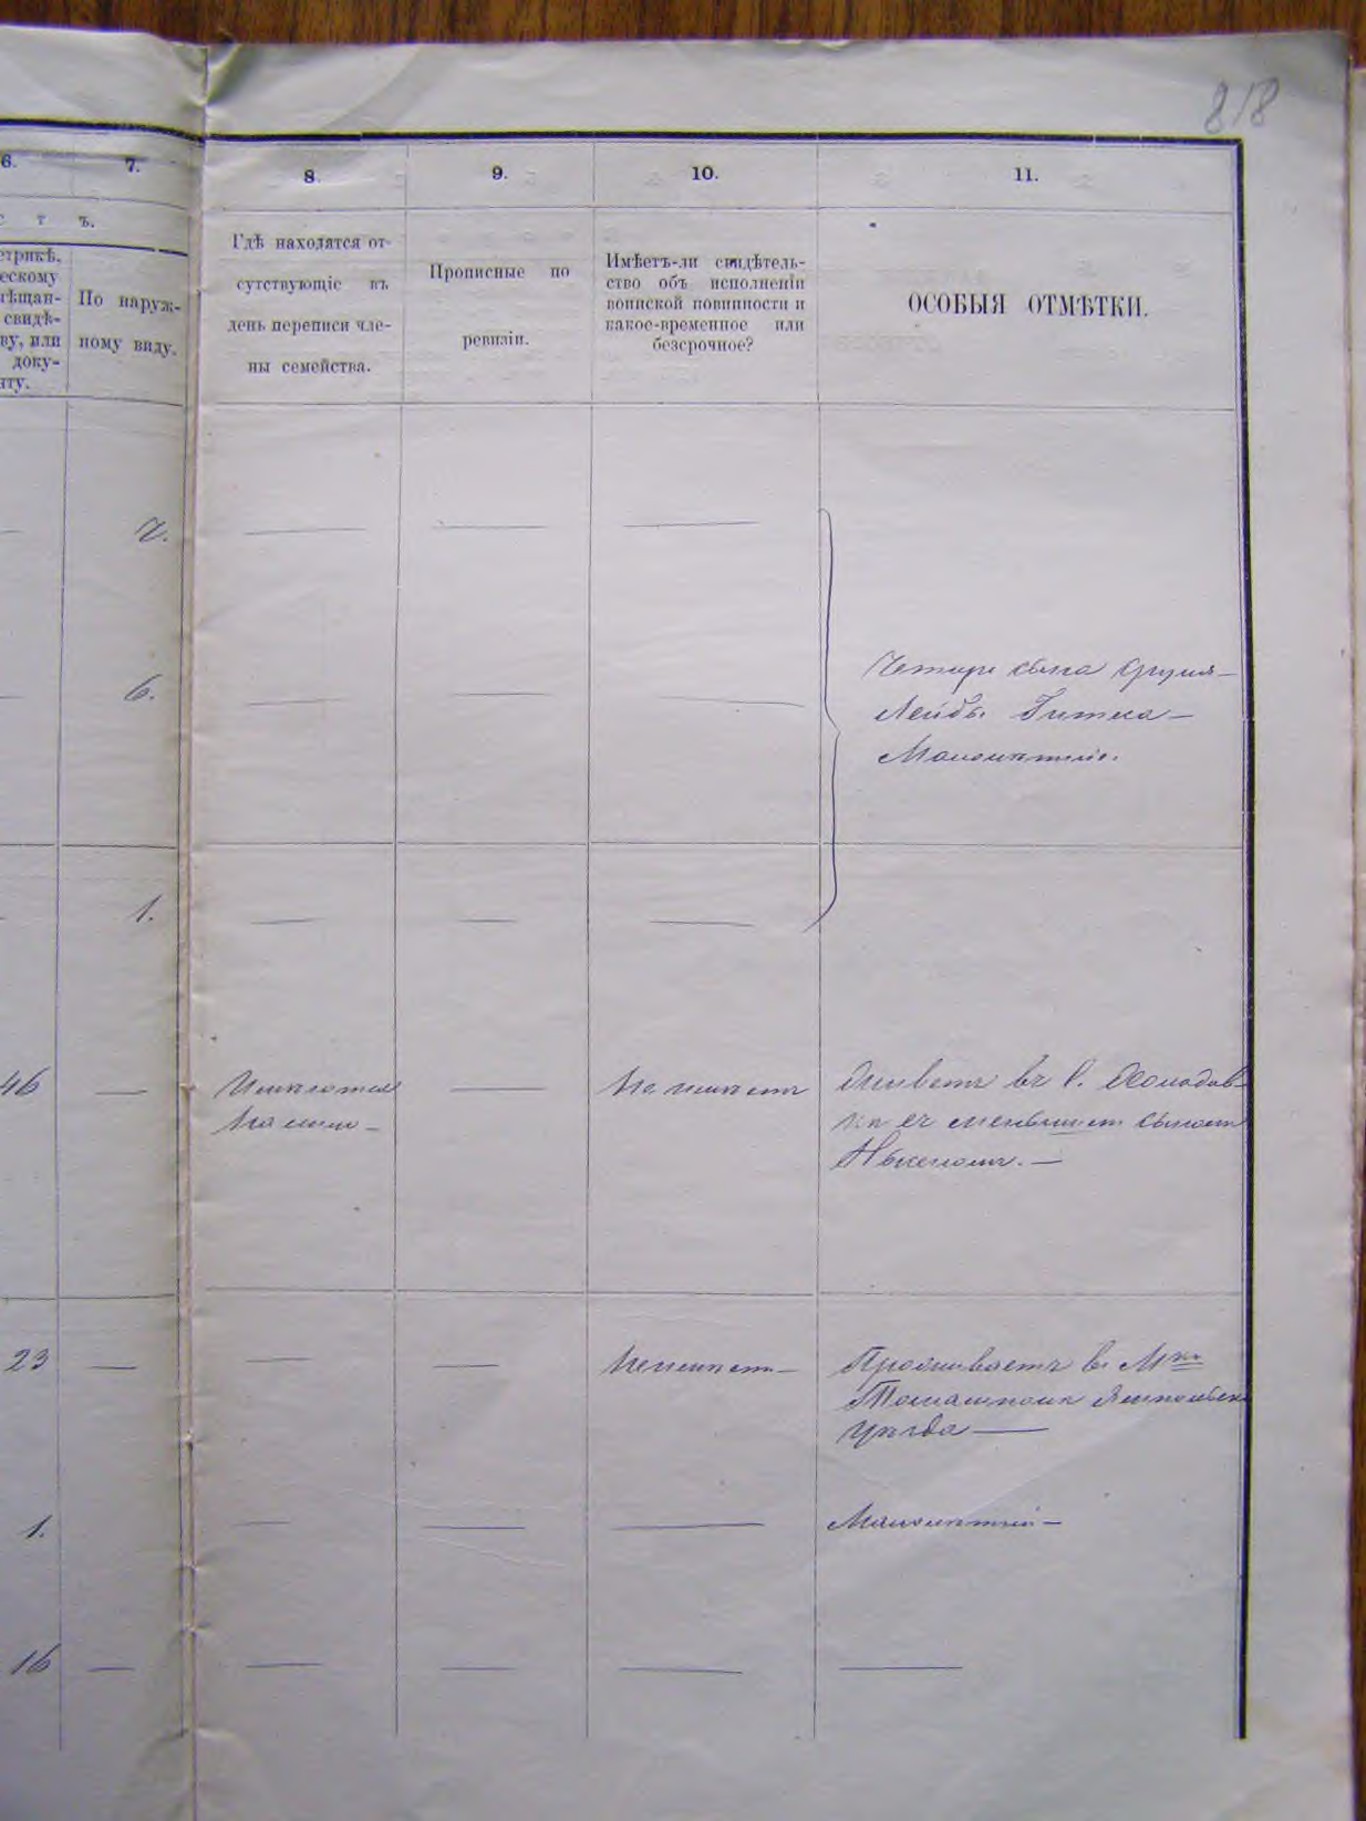 818
6.
7.
8.
9.
10.
11.
с т ъ.
етрикѣ,
ескому
ѣщан-
свидѣ-
ву, или
доку-
нту.
По наруж-
ному виду.
Гдѣ находятся от-
сутствующіе въ
день переписи чле-
ны семейства.
Прописные по
ревизіи.
Имѣетъ-ли свидѣтель-
ство объ исполненіи
воинской повинности и
какое-временное или
безсрочное?
ОСОБЫЯ ОТМѢТКИ.
6.
Четыре сына
Лейбы
Малолѣтніе.
1.
46
На лицо
Не имѣетъ
живетъ въ с.
съ меньшимъ сыномъ
23
Не имѣетъ
Проживаетъ въ М
Томашполѣ Ямпольск
уѣзда
1.
Малолѣтній
16